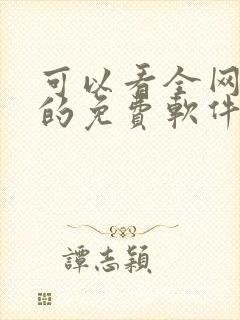 可以看全网
的免費軟件
譚志穎